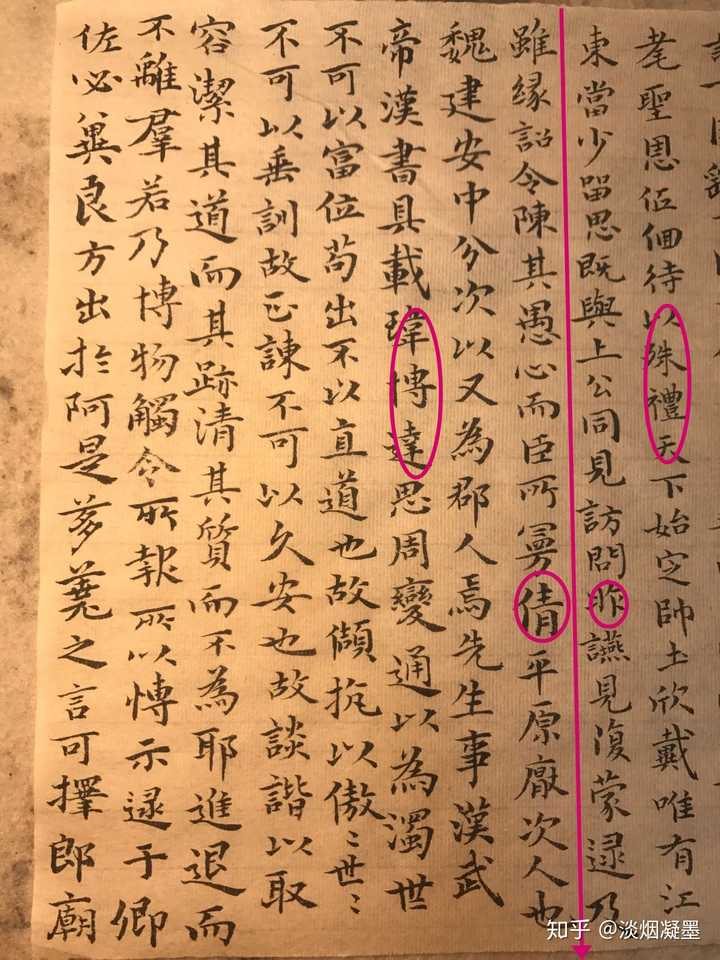 耄聖恩低佪待以殊禮天下始定帥土欣戴唯有江
東當少留思既與上公同見訪問昨讌見復蒙逮乃
雖緣詔令陳其愚心而臣所曼倩平原厭次人也
魏建安中分次以又為郡人焉先生事漢武
帝漢書具載瑋博達思周變通以為濁世
不可以富位苟出不以直道也故傾抗以傲〻世〻
不可以垂訓故正諫不可以久安也故談諧以取
容潔其道而其跡清其質而不為耶進退而
不離羣若乃博物觸令所報所以博示逮于卿
佐必冀良方出於阿是芻蕘之言可擇郎廟
知乎 @淡烟凝墨